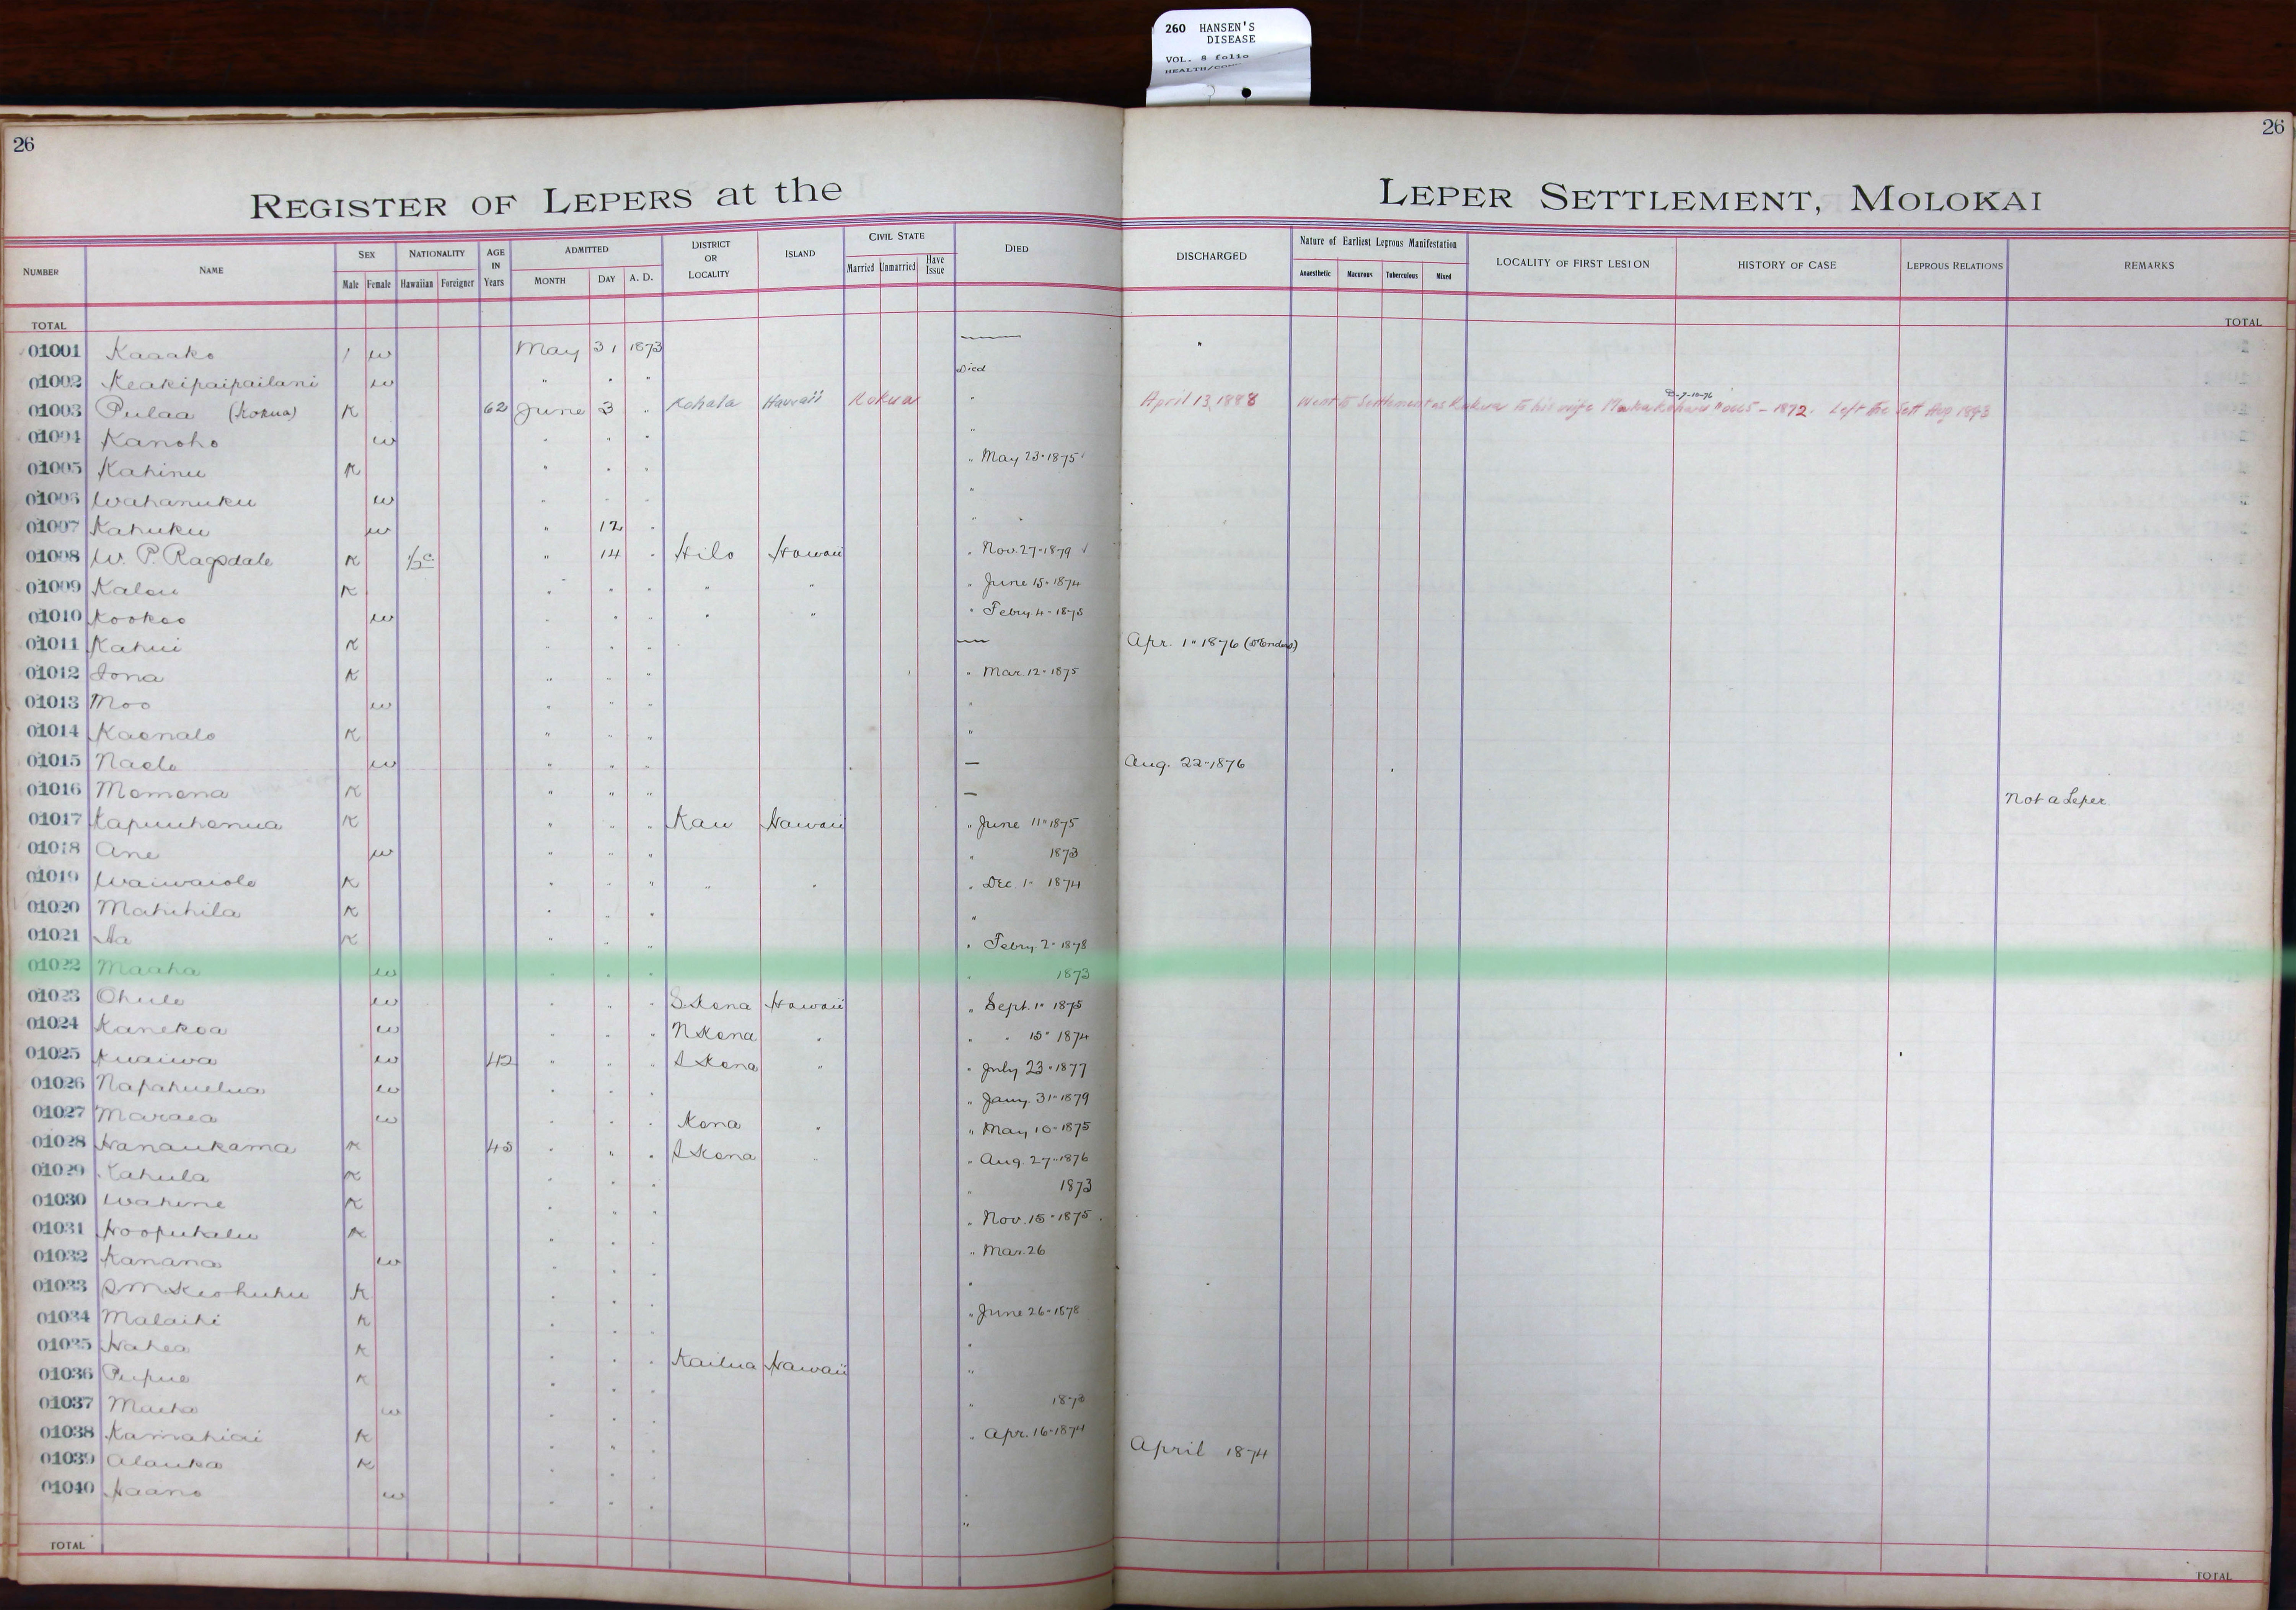 260 HANSEN'S
DISEASE
VOL. 8 folio
HEALTH/
26
26
REGISTER OF LEPERS at the LEPER SETTLEMENT, MOLOKAI
NUMBER NAME SEX NATIONALITY AGE IN Years ADMITTED DISTRICT OR LOCALITY ISLAND CIVIL STATE DIED DISCHARGED Nature of Earliest Leprous Manifestation LOCALITY OF FIRST LESION HISTORY OF CASE LEPROUS RELATIONS REMARKS
Male Female Hawaiian Foreigner MONTH DAY A. D. Married Unmarried Have Issue Anaesthetic Macurous Tuberculous Mixed
TOTAL TOTAL
01001 Kaaako / w May 31 1873 — "
01002 Keakipaipailani w " " " Died
01003 Pulaa (Kokua) K 62 June 3 " Kohala Hawaii Kokua " April 13, 1888 Went to Settlement as Kokua to his wife 1872. Left the Sett Aug 1893
01004 Kanoho w " " " "
01005 Kahinu K " " " " May 23 • 1875
01006 Wahanuku w " " " "
01007 Kahuku w " 12 " "
01008 W. P. Ragsdale K ½ c " 14 " Hilo Hawaii " Nov. 27 • 1879
01009 Kalou K " " " " " " June 15 • 1874
01010 Kookoo w " " " " " " Febry 4 - 1875
01011 Kahui K " " " — Apr. 1" 1876
01012 Iona K " " " " Mar. 12 • 1875
01013 Moo w " " " "
01014 Kaonalo K " " " "
01015 Naelo w " " " — Aug. 22 - 1876
01016 Momona K " " " — Not a Leper
01017 Kapuuhonua K " " " Kau Hawaii " June 11" 1875
01018 Ane w " " " " 1873
01019 Waiwaiole K " " " " " " Dec. 1 - 1874
01020 Mahihila K " " " "
01021 Aa K " " " " Febry 2 • 1878
01022 Maaha w " " " " 1873
01023 Ohule w " " " S. Kona Hawaii " Sept. 1" 1875
01024 Kanekoa w " " " N Kona " " " 15" 1874
01025 Kuaiwa w 42 " " " S Kona " " July 23 • 1877
01026 Napahuelua w " " " " Jany. 31 - 1879
01027 Maraea w " " " Kona " " May 10 - 1875
01028 Hanaukama K 45 " " " S Kona " " Aug. 27 - 1876
01029 Kahula K " " " " 1873
01030 Wahine K " " " " Nov. 15 • 1875
01031 Hoopukalu K " " " " Mar. 26
01032 Kanana w " " " "
01033 S M Keohuhu K " " " " June 26 - 1878
01034 Malaihi K " " " "
01035 Hahea K " " " Kailua Hawaii "
01036 Pupue K " " " " 1873
01037 Maeha w " " " " Apr. 16 - 1874
01038 Kamahiai K " " " April 1874
01039 Alauka K " " " "
01040 Haano w " " " "
TOTAL TOTAL